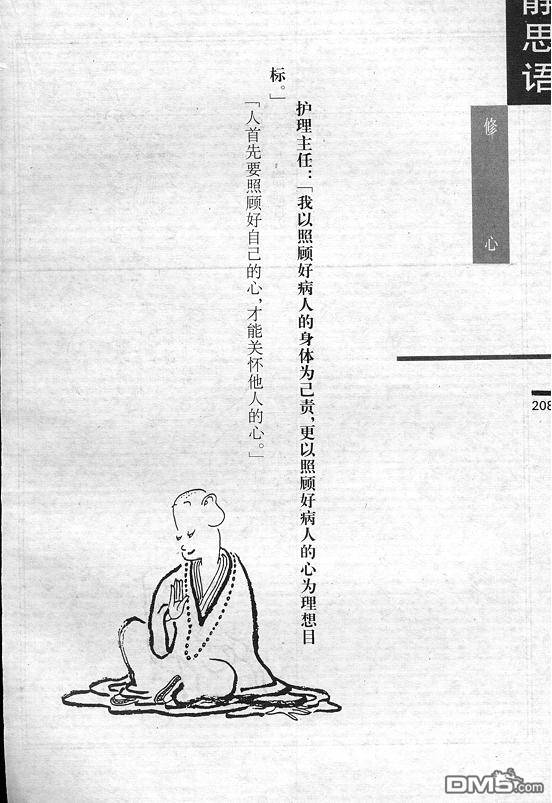 静思语
修心
208
护理主任：「我以照顾好病人的身体为己责，更以照顾好病人的心为理想目
标。」
「人首先要照顾好自己的心，才能关怀他人的心。」
DM5.com